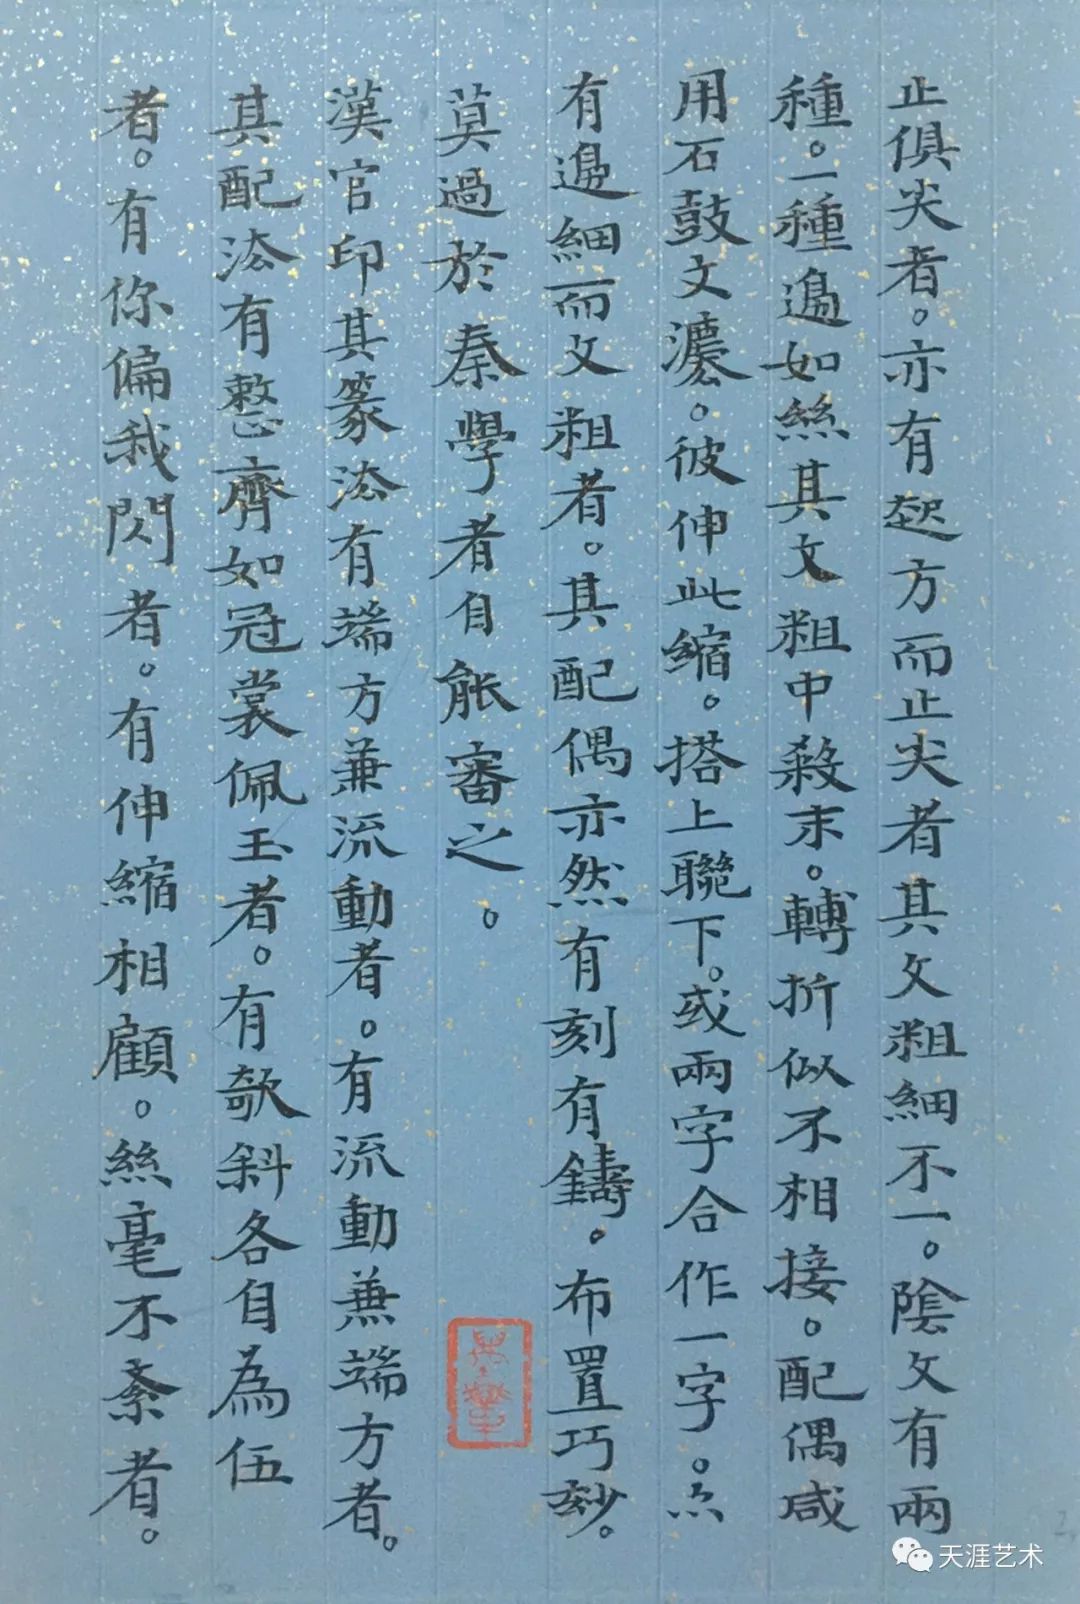 止俱尖者。亦有起方而止尖者其文粗細不一。陰文有兩
種。一種邊如絲其文粗中殺末。轉折似不相接。配偶咸
用石鼓文灋。彼伸此縮。搭上聯下。或兩字合作一字。亦
有邊細而文粗者。其配偶亦然有刻有鑄。布置巧玅。
莫過於秦學者自能審之。
漢官印其篆法有端方兼流動者。有流動兼端方者。
其配法有整齊如冠裳佩玉者。有欹斜各自為伍
者。有你偏我閃者。有伸縮相顧。絲毫不紊者。
天涯艺术